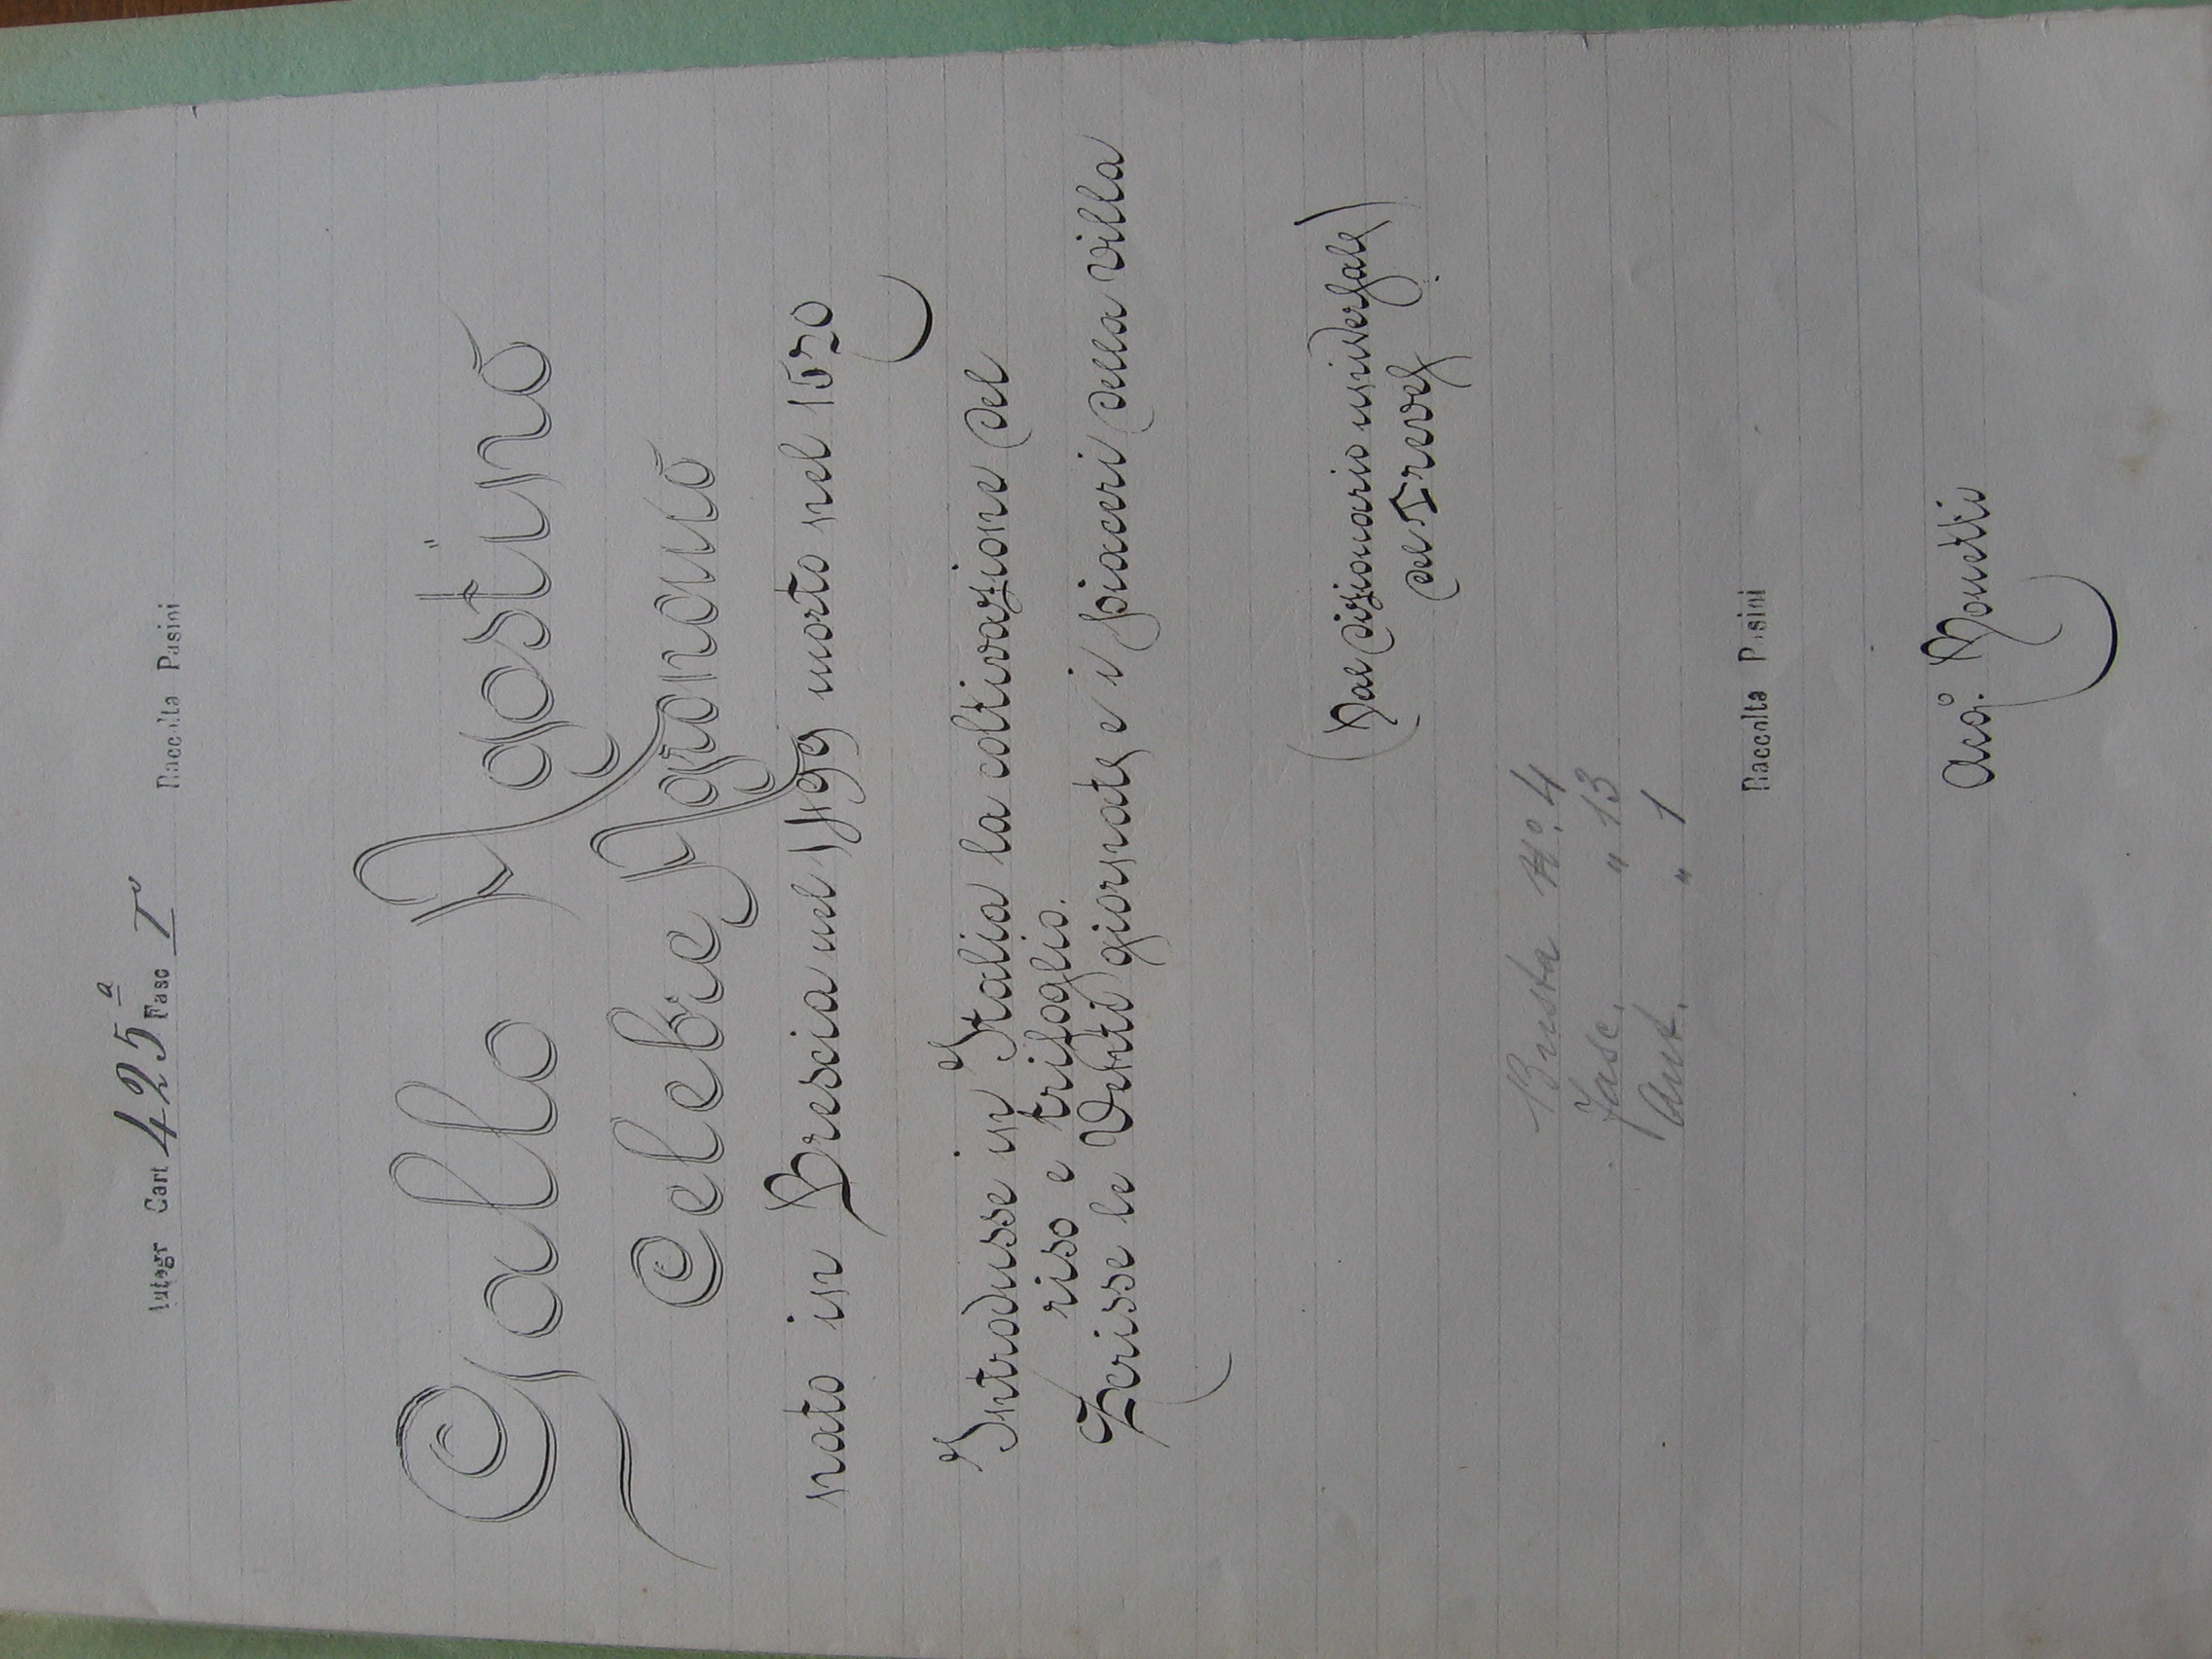 Autogr Cart 425ª Fasc I Raccolta Pasini
Gallo Agostino
Celebre Agronomo
nato in Brescia nel 1499 morto nel 1570
Introdusse in Italia la coltivazione del
riso e trifoglio.
Scrisse le Venti giornate e i piaceri della villa
(Dal dizionario universale)
del Treves
Busta Nº. 4
Fasc. " 13
Aut. " 1
Raccolta Pasini